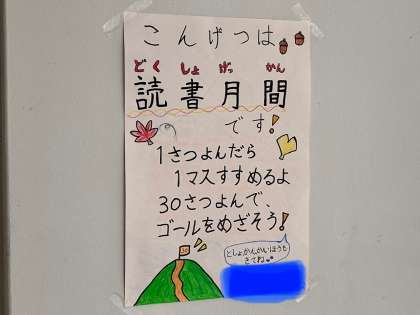 こんげつは
どくしょげっかん
読書月間
です!
1さつよんだら
1マスすすめるよ
30さつよんで、
ゴールをめざそう!
としょかんかいほうも
きてね
30